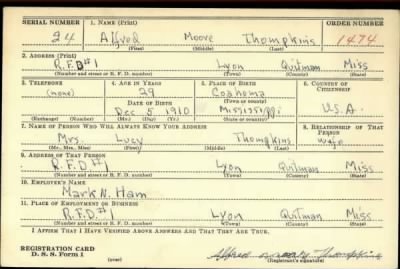 SERIAL NUMBER 1. NAME (Print) ORDER NUMBER
24 Alfred Moore Thompkins 1474
(First) (Middle) (Last)
2. ADDRESS (Print)
R.F.D #1 Lyon Quitman Miss
(Number and street or R. F. D. number) (Town) (County) (State)
3. TELEPHONE 4. AGE IN YEARS 5. PLACE OF BIRTH 6. COUNTRY OF CITIZENSHIP
(none) 29 Coahoma
DATE OF BIRTH (Town or county)
Dec 5 1910 Mississippi U.S.A.
(Exchange) (Number) (Mo.) (Day) (Yr.) (State or country)
7. NAME OF PERSON WHO WILL ALWAYS KNOW YOUR ADDRESS 8. RELATIONSHIP OF THAT PERSON
Mrs. Lucy Thompkins wife
(Mr., Mrs., Miss) (First) (Middle) (Last)
9. ADDRESS OF THAT PERSON
R.F.D #1 Lyon Quitman Miss
(Number and street or R. F. D. number) (Town) (County) (State)
10. EMPLOYER'S NAME
Mark N. Ham
11. PLACE OF EMPLOYMENT OR BUSINESS
R.F.D. #1 Lyon Quitman Miss
(Number and street or R. F. D. number) (Town) (County) (State)
I AFFIRM THAT I HAVE VERIFIED ABOVE ANSWERS AND THAT THEY ARE TRUE.
REGISTRATION CARD
D. S. S. Form 1 (over) Alfred Thompkins
(Registrant's signature)